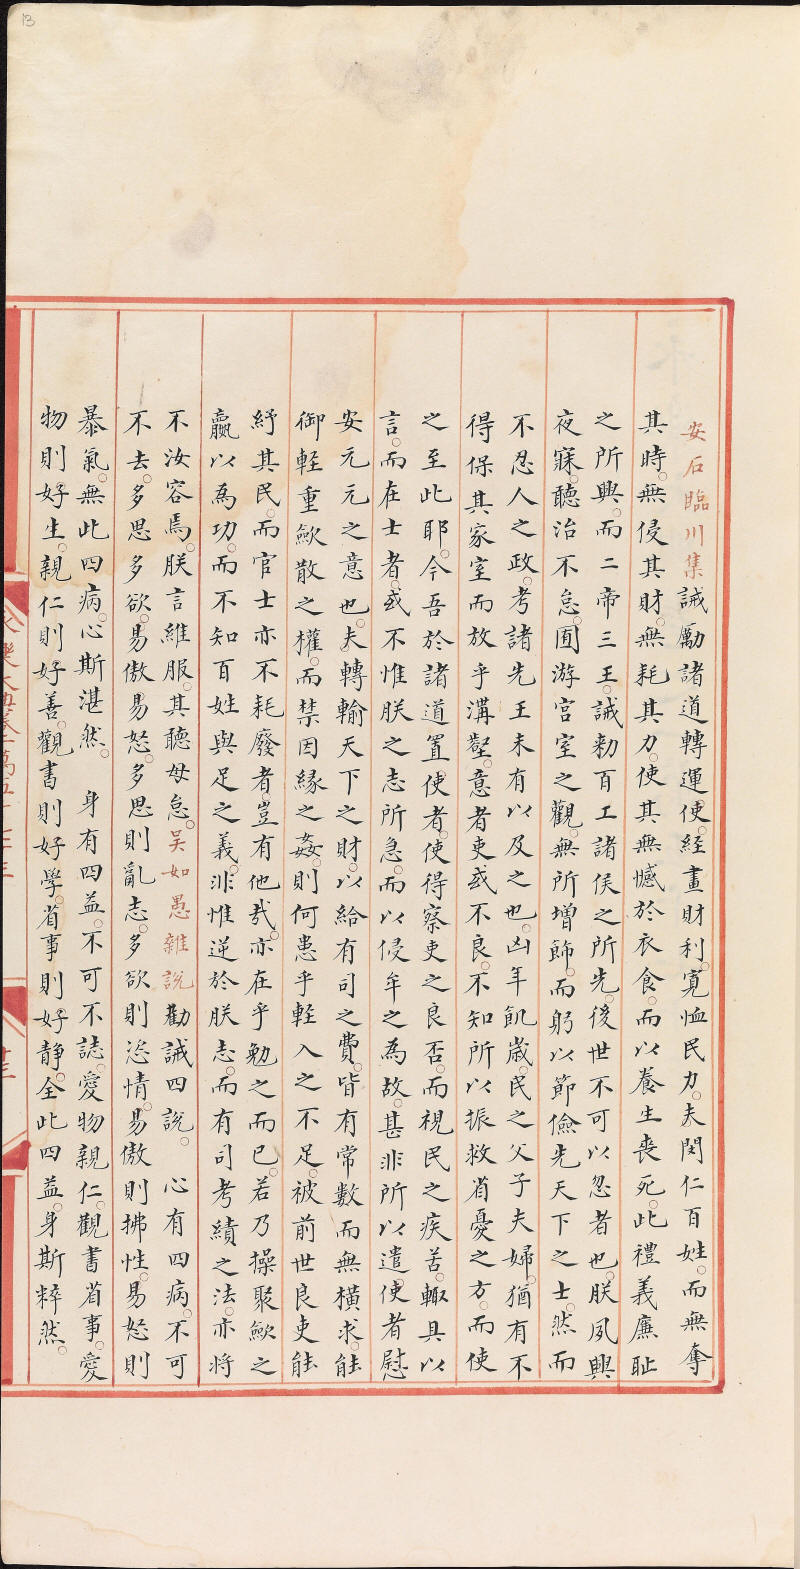 安石臨川集誡勵諸道轉運使。經畫財利。寬恤民力。夫閔仁百姓。而無奪
其時。無侵其財。無耗其力。使其無憾於衣食。而以養生喪死。此禮義廉耻
之所興。而二帝三王。誡勑百工諸侯之所先。後世不可以忽者也。朕夙興
夜寐。聽治不怠。囿游宮室之觀。無所增飾。而躬以節儉先天下之士。然而
不忍人之政。考諸先王未有以及之也。凶年飢歲。民之父子夫婦。猶有不
得保其家室而放乎溝壑。意者吏或不良。不知所以振救省憂之方。而使
之至此耶。今吾於諸道置使者。使得察吏之良否。而視民之疾苦。輙具以
言。而在士者。或不惟朕之志所急。而以侵牟之為故。甚非所以遣使者慰
安元元之意也。夫轉輸天下之財。以給有司之費。皆有常數而無橫求。能
御輕重歛散之權。而禁因緣之姦。則何患乎輕入之不足。被前世良吏能
紓其民。而官士亦不耗廢者。豈有他哉。亦在乎勉之而已。若乃操聚歛之
贏以為功。而不知百姓與足之義。非惟逆於朕志。而有司考績之法。亦將
不汝容焉。朕言維服。其聽毋怠。吳如愚雜說勸誡四說。 心有四病。不可
不去。多思多欲。易傲易怒。多思則亂志。多欲則恣情。易傲則拂性。易怒則
暴氣。無此四病。心斯湛然。 身有四益。不可不誌。愛物親仁。觀書省事。愛
物則好生。親仁則好善。觀書則好學。省事則好靜。全此四益。身斯粹然。
永樂大典卷一萬五
十三
13